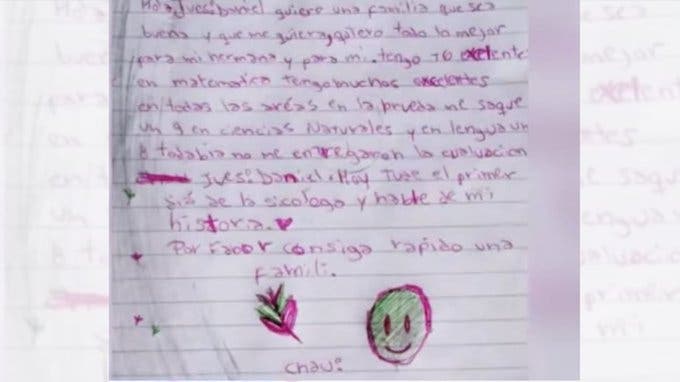 Hola Jues: Daniel quiere una familia que sea
buena y que me quiera, quiero todo lo mejor
para mi hermana y para mi. tengo 10 exelente
en matematica tengo muchos exelentes
en todas las areas en la prueba me saque
un 9 en ciencias Naturales y en lengua un
8 todabia no me entregaron la evaluacion
Jues: Daniel: Hoy Tuve el primer
dia de la sicologa y hable de mi
historia.
Por Favor consiga rapido una
Famili.
chau: